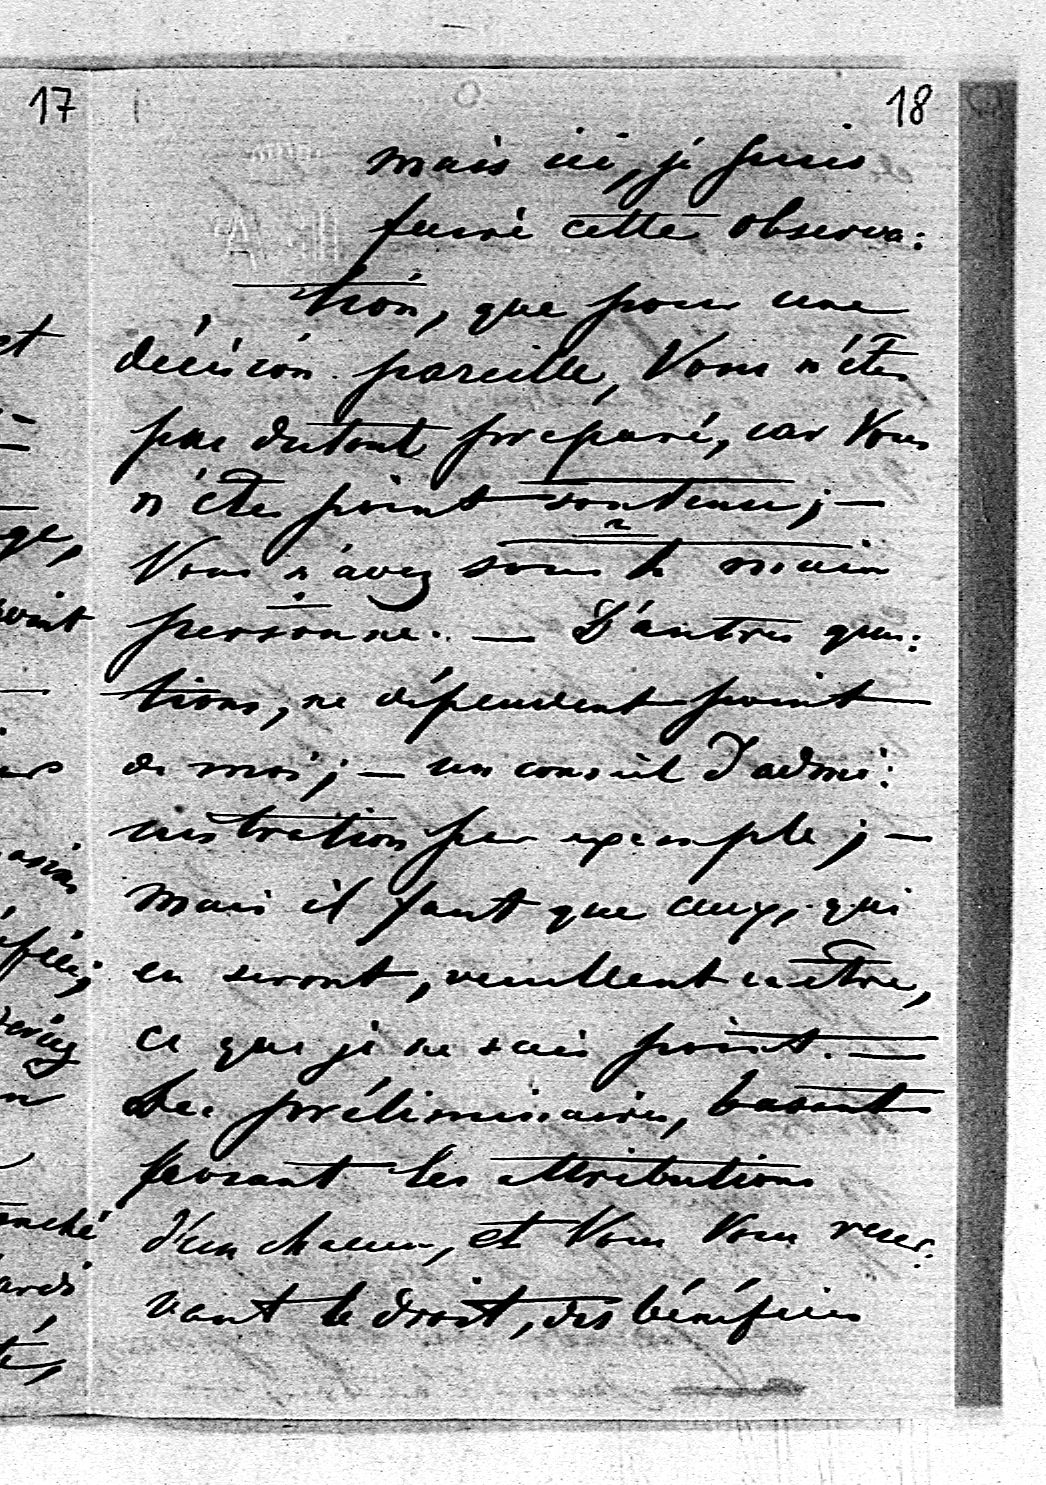 17
18
mais ici, je puis
faire cette observa:
tion, que pour une
décision pareille, Vous n'êtes
pas du tout préparé, car Vous
n'êtes point soutenu; —
Vous n'avez sous la main
personne. — D'autres ques:
tions, ne dépendent point
de moi; — un conseil d'admi:
nistration par exemple; —
mais il faut que ceux, qui
en seront, veuillent en être,
ce que je ne sais point. —
Les préliminaires,
posant les attributions
d'un chacun, et Vous Vous reser:
vant le droit, des bénéfices
et
ge,
point
anché
té,